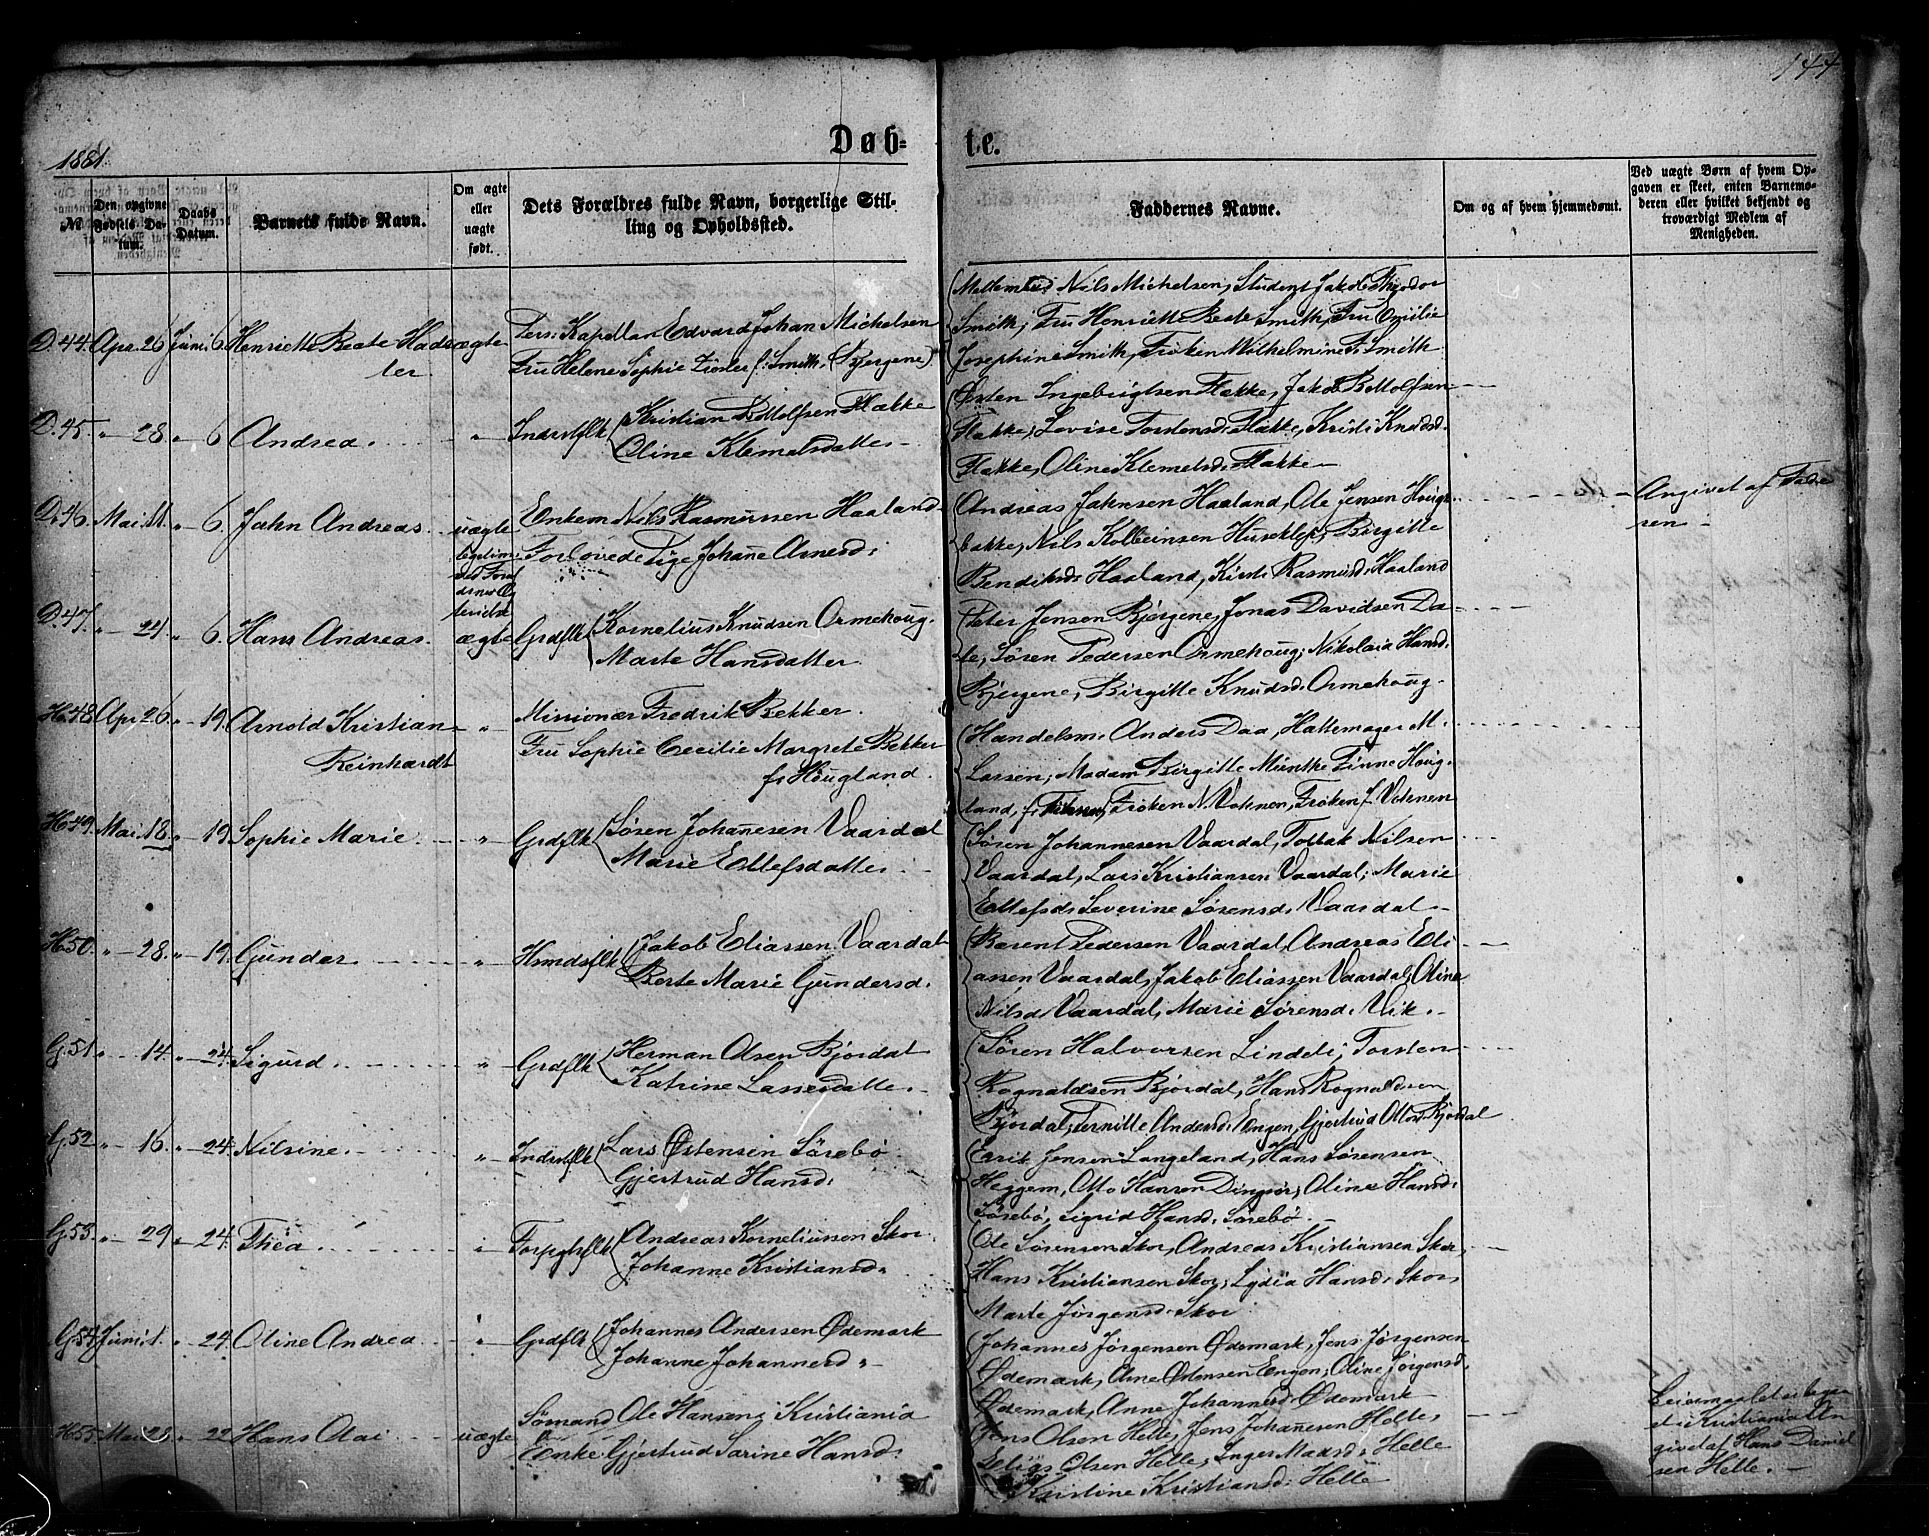 144
1881.
Døb-
te.
№
Den opgivne Fødsels Datum.
Daabs Datum.
Barnets fulde Navn.
Om ægte eller uægte født.
Dets Forældres fulde Navn, borgerlige Stilling og Opholdssted.
Faddernes Navne.
Om og af hvem hjemmedøbt.
Ved uægte Børn af hvem Opgaven er skeet, enten Barnemoderen eller hvilket bekjendt og troværdigt Medlem af Menigheden.
D. 44. Apr. 26 Juni 6. Henriette Beate Hadeler ægte
Pers: Kapellan Edvard Johan Michelsen
Fru Helene Sophie f: Smith. (Bjergene)
Nils Michelsen, Student Jakob Thjodor
Smith; Fru Henriette Beate Smith, Fru Emilie
Josephine Smith, Frøken Wilhelmine F. Smith
D. 45. " 28. " 6 Andrea. "
Indrstflk Kristian Flække
Oline Klemetsdatter
Østen Ingebrigtsen Flække, Jakob
Flække; Lovise Torstensd: Flække, Kristi Knudsd:
Flække, Oline Klemetsd: Flække
D. 46. Mai 11. " 6. Jahn Andreas. uægte
Enkem Nils Rasmussen Haaland
Forlovede Pige Johanne Arnesd:
Andreas Jahnsen Haaland, Ole Jensen Hougs-
bakke, Nils Kolbeinsen Huseklep; Birgitte
Bendiksd: Haaland, Kirsti Rasmusd: Haaland
Angivet af Fade
ren
D. 47. " 21 " 6. Hans Andreas. ægte
Grdflk Kornelius Knudsen Ormehoug.
Marte Hansdatter
Peter Jensen Bjergene, Jonas Davidsen Da-
le, Søren Pedersen Ormehoug; Nikolaia Hansd:
Bjergene, Birgitte Knudsd: Ormehoug.
H. 48 Apr 26. " 19. Arnold Kristian "
Reinhardt
Missionær Fredrik Bekker.
Fru Sophie Cecilie Margrete Bekker
f: Hougland.
Handelsm. Anders Daa, Hattemager M.
Larsen; Madam Birgitte Munthe Finne Houg-
land, Frøken N. Vohnen, Frøken J. Vohnen
H. 49. Mai. 18. " 19 Sophie Marie. "
Grdflk Søren Johannesen Vaardal
Marie Ellefsdatter
Søren Johannesen Vaardal, Tollak Nilsen
Vaardal, Lars Kristiansen Vaardal; Marie
Ellefsd: Severine Sørensd: Vaardal.
H. 50. " 28. " 19. Gunder. "
Hsmdsflk Jakob Eliassen Vaardal
Berte Marie Gundersd.
Barent Pedersen Vaardal, Andreas Eli
assen Vaardal, Jakob Eliassen Vaardal; Oline
Nilsd Vaardal, Marie Sørensd. Vik.
G. 51. " 14. " 24. Sigurd. "
Grdflk Herman Olsen Bjordal
Katrine Lassesdatter
Søren Halvorsen Lindeli; Torsten
Rognaldsen Bjordal, Hans Rognaldsen
Bjordal; Pernille Andersd: Engen, Gjertrud Olsd: Bjordal
G. 52 " 16. " 24. Nilsine. "
Indrstflk Lars Østensen Sørebø
Gjertrud Hansd:
Eerik Jensen Langeland, Hans Sørensen
Heggem, Otto Hansen Dingsør; Oline Hansd:
Sørebø, Sigrid Hansd. Sørebø.
G. 53. " 29 " 24. Thea. "
Forpgtrflk Andreas Korneliussen Skor.
Johanne Kristiansd:
Ole Sørensen Skor, Andreas Kristiansen Skor,
Hans Kristiansen Skor; Lydia Hansd: Skor
Marte Jørgensd. Skor
G. 54. Juni 1. " 24. Oline Andrea "
Grdflk Johannes Andersen Ødemark
Johanne Johannesd:
Johannes Jørgensen Ødemark, Jens Jørgensen
Ødemark, Arne Østensen Engen; Oline Jørgensd.
Ødemark, Anne Johannesd: Ødemark
H. 55. Mai 28 " 22 Hans Olai uægte
Sømand Ole Hansen; Kristiania
Enke Gjertrud Sarine Hansd:
Jens Olsen Helle, Jens Johannesen Helle,
Elias Olsen Helle, Inger Madsd: Helle
Kristine Kristiansd: Helle
Leiermaalet i Kristiania An
givet af Hans Daniel
sen Helle.